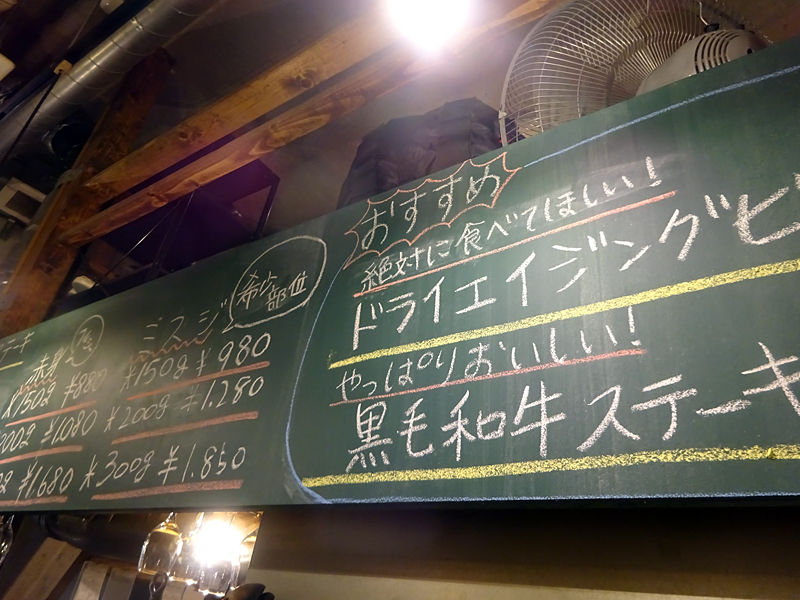 おすすめ
絶対に食べてほしい!
ドライエイジングビ
やっぱりおいしい!
黒毛和牛ステーキ
希少部位
ミスジ
*150g ¥980
*200g ¥1.280
*300g ¥1.850
テーキ
赤身
*150g ¥880
200g ¥1.080
¥1.680